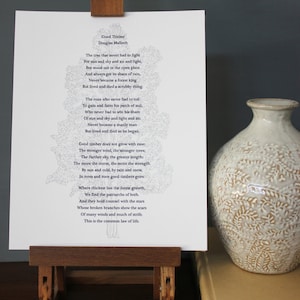 Good Timber
Douglas Malloch
The tree that never had to fight
For sun and sky and air and light,
But stood out in the open plain
And always got its share of rain,
Never became a forest king
But lived and died a scrubby thing.
The man who never had to toil
To gain and farm his patch of soil,
Who never had to win his share
Of sun and sky and light and air,
Never became a manly man
But lived and died as he began.
Good timber does not grow with ease,
The stronger wind, the stronger trees,
The further sky, the greater length,
The more the storm, the more the strength.
By sun and cold, by rain and snow,
In trees and men good timbers grow.
Where thickest lies the forest growth,
We find the patriarchs of both.
And they hold counsel with the stars
Whose broken branches show the scars
Of many winds and much of strife.
This is the common law of life.